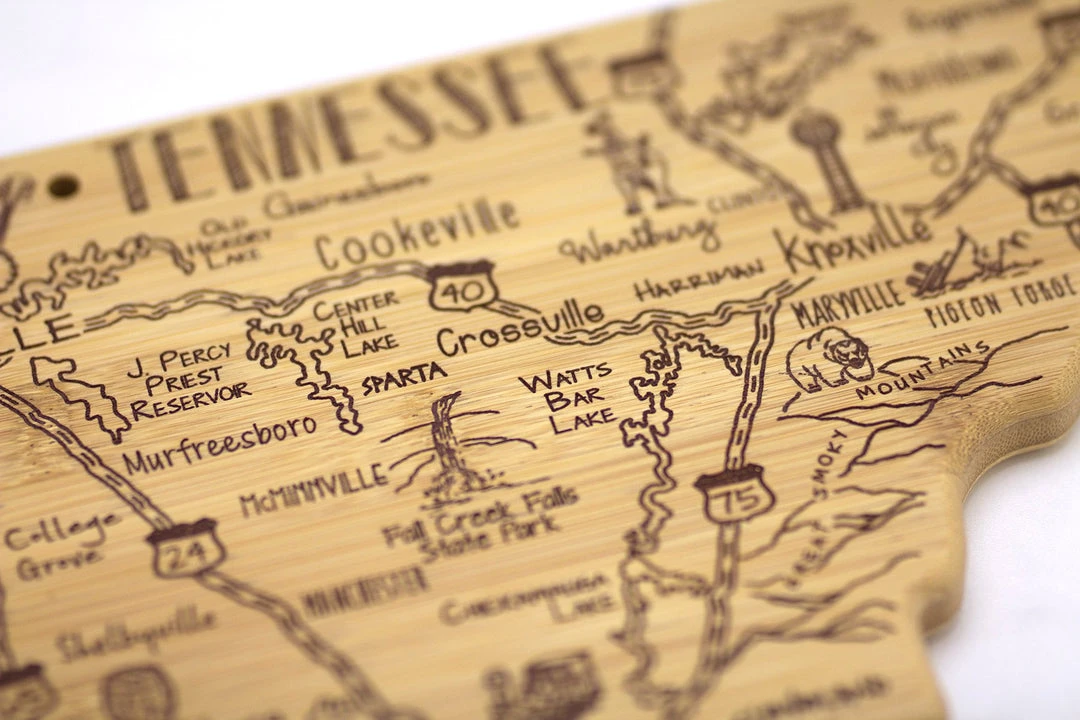 TENNESSEE
Gainesboro
OLD
HICKORY
LAKE
Cookeville
Wartburg
CLINTON
Knoxville
HARRIMAN
40
40
LE
CENTER
HILL
LAKE
Crossville
MARYVILLE
PIGEON FORGE
J. PERCY
PRIEST
RESERVOIR
SPARTA
WATTS
BAR
LAKE
Murfreesboro
McMINNVILLE
GREAT SMOKY MOUNTAINS
75
Fall Creek Falls
State Park
College
Grove
24
MANCHESTER
CHICKAMAUGA
LAKE
Shelbyville